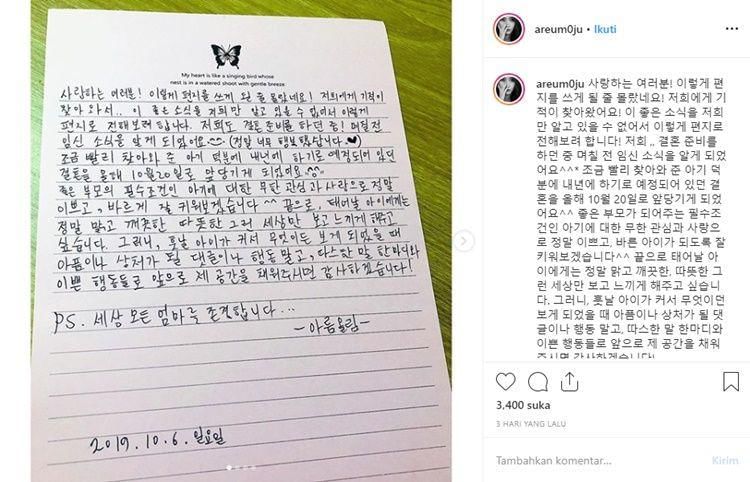 My heart is like a singing bird whose
nest is in a watered shoot with gentle breeze
사랑하는 여러분! 이렇게 편지를 쓰게 될 줄 몰랐네요! 저희에게 기적이
찾아와서.. 이 좋은 소식을 저희만 알고 있을 수 없어서 이렇게
편지로 전해보려 합니다. 저희도 결혼 준비를 하던 중! 며칠전
임신 소식을 알게 되었어요 (정말 너무 행복했답니다..♥)
조금 빨리 찾아와 준 아기 덕분에 내년에 하기로 예정되어 있던
결혼을 올해 10월20일로 앞당기게 되었어요
좋은 부모의 필수조건인 아기에 대한 무한 관심과 사랑으로 정말
이쁘고, 바르게 잘 키워보겠습니다 ^^ 끝으로, 태어날 아이에게는
정말 맑고 깨끗한 따뜻한 그런 세상만 보고 느끼게 해주고
싶습니다. 그러니, 훗날 아이가 커서 무엇이든 보게 되었을 때
아픔이나 상처가 될 댓글이나 행동 말고, 따스한 말 한마디와
이쁜 행동들로 앞으로 제 공간을 채워주시면 감사하겠습니다!
PS. 세상 모든 엄마를 존경합니다...
-아름올림-
2019.10.6. 일요일
areum0ju • Ikuti
areum0ju 사랑하는 여러분! 이렇게 편
지를 쓰게 될 줄 몰랐네요! 저희에게 기
적이 찾아왔어요! 이 좋은 소식을 저희
만 알고 있을 수 없어서 이렇게 편지로
전해보려 합니다! 저희 .. 결혼 준비를
하던 중 며칠 전 임신 소식을 알게 되었
어요^^* 조금 빨리 찾아와 준 아기 덕
분에 내년에 하기로 예정되어 있던 결
혼을 올해 10월 20일로 앞당기게 되었
어요^^ 좋은 부모가 되어주는 필수조
건인 아기에 대한 무한 관심과 사랑으
로 정말 이쁘고, 바른 아이가 되도록 잘
키워보겠습니다^^ 끝으로 태어날 아
이에게는 정말 맑고 깨끗한, 따뜻한 그
런 세상만 보고 느끼게 해주고 싶습니
다. 그러니, 훗날 아이가 커서 무엇이던
보게 되었을 때 아픔이나 상처가 될 댓
글이나 행동 말고, 따스한 말 한마디와
이쁜 행동들로 앞으로 제 공간을 채워
주시면 감사하겠습니다!
3,400 suka
3 HARI YANG LALU
Tambahkan komentar...
Kirim